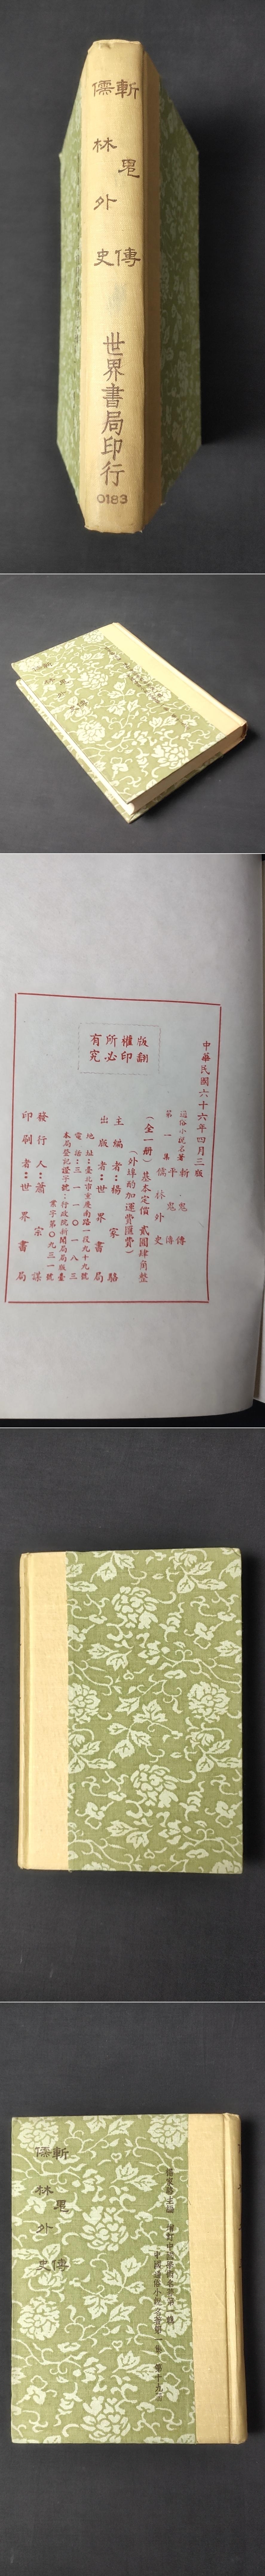 斬鬼傳
儒林外史
世界書局印行
0183
中華民國六十六年四月三版
通俗小說名著
第一集
斬鬼傳
平鬼傳
儒林外史
(全一冊) 基本定價 貳圓肆角整
(外埠酌加運費匯費)
主編者:楊家駱
出版者:世界書局
地址:臺北市重慶南路一段九十九號
電話:三一一〇一八三
本局登記證字號:行政院新聞局局版臺
業字第〇九三一號
發行人:蕭宗謀
印刷者:世界書局
版權所有
翻印必究
斬鬼傳
儒林外史
楊家駱主編
中國通俗小說名著第一集 第十九